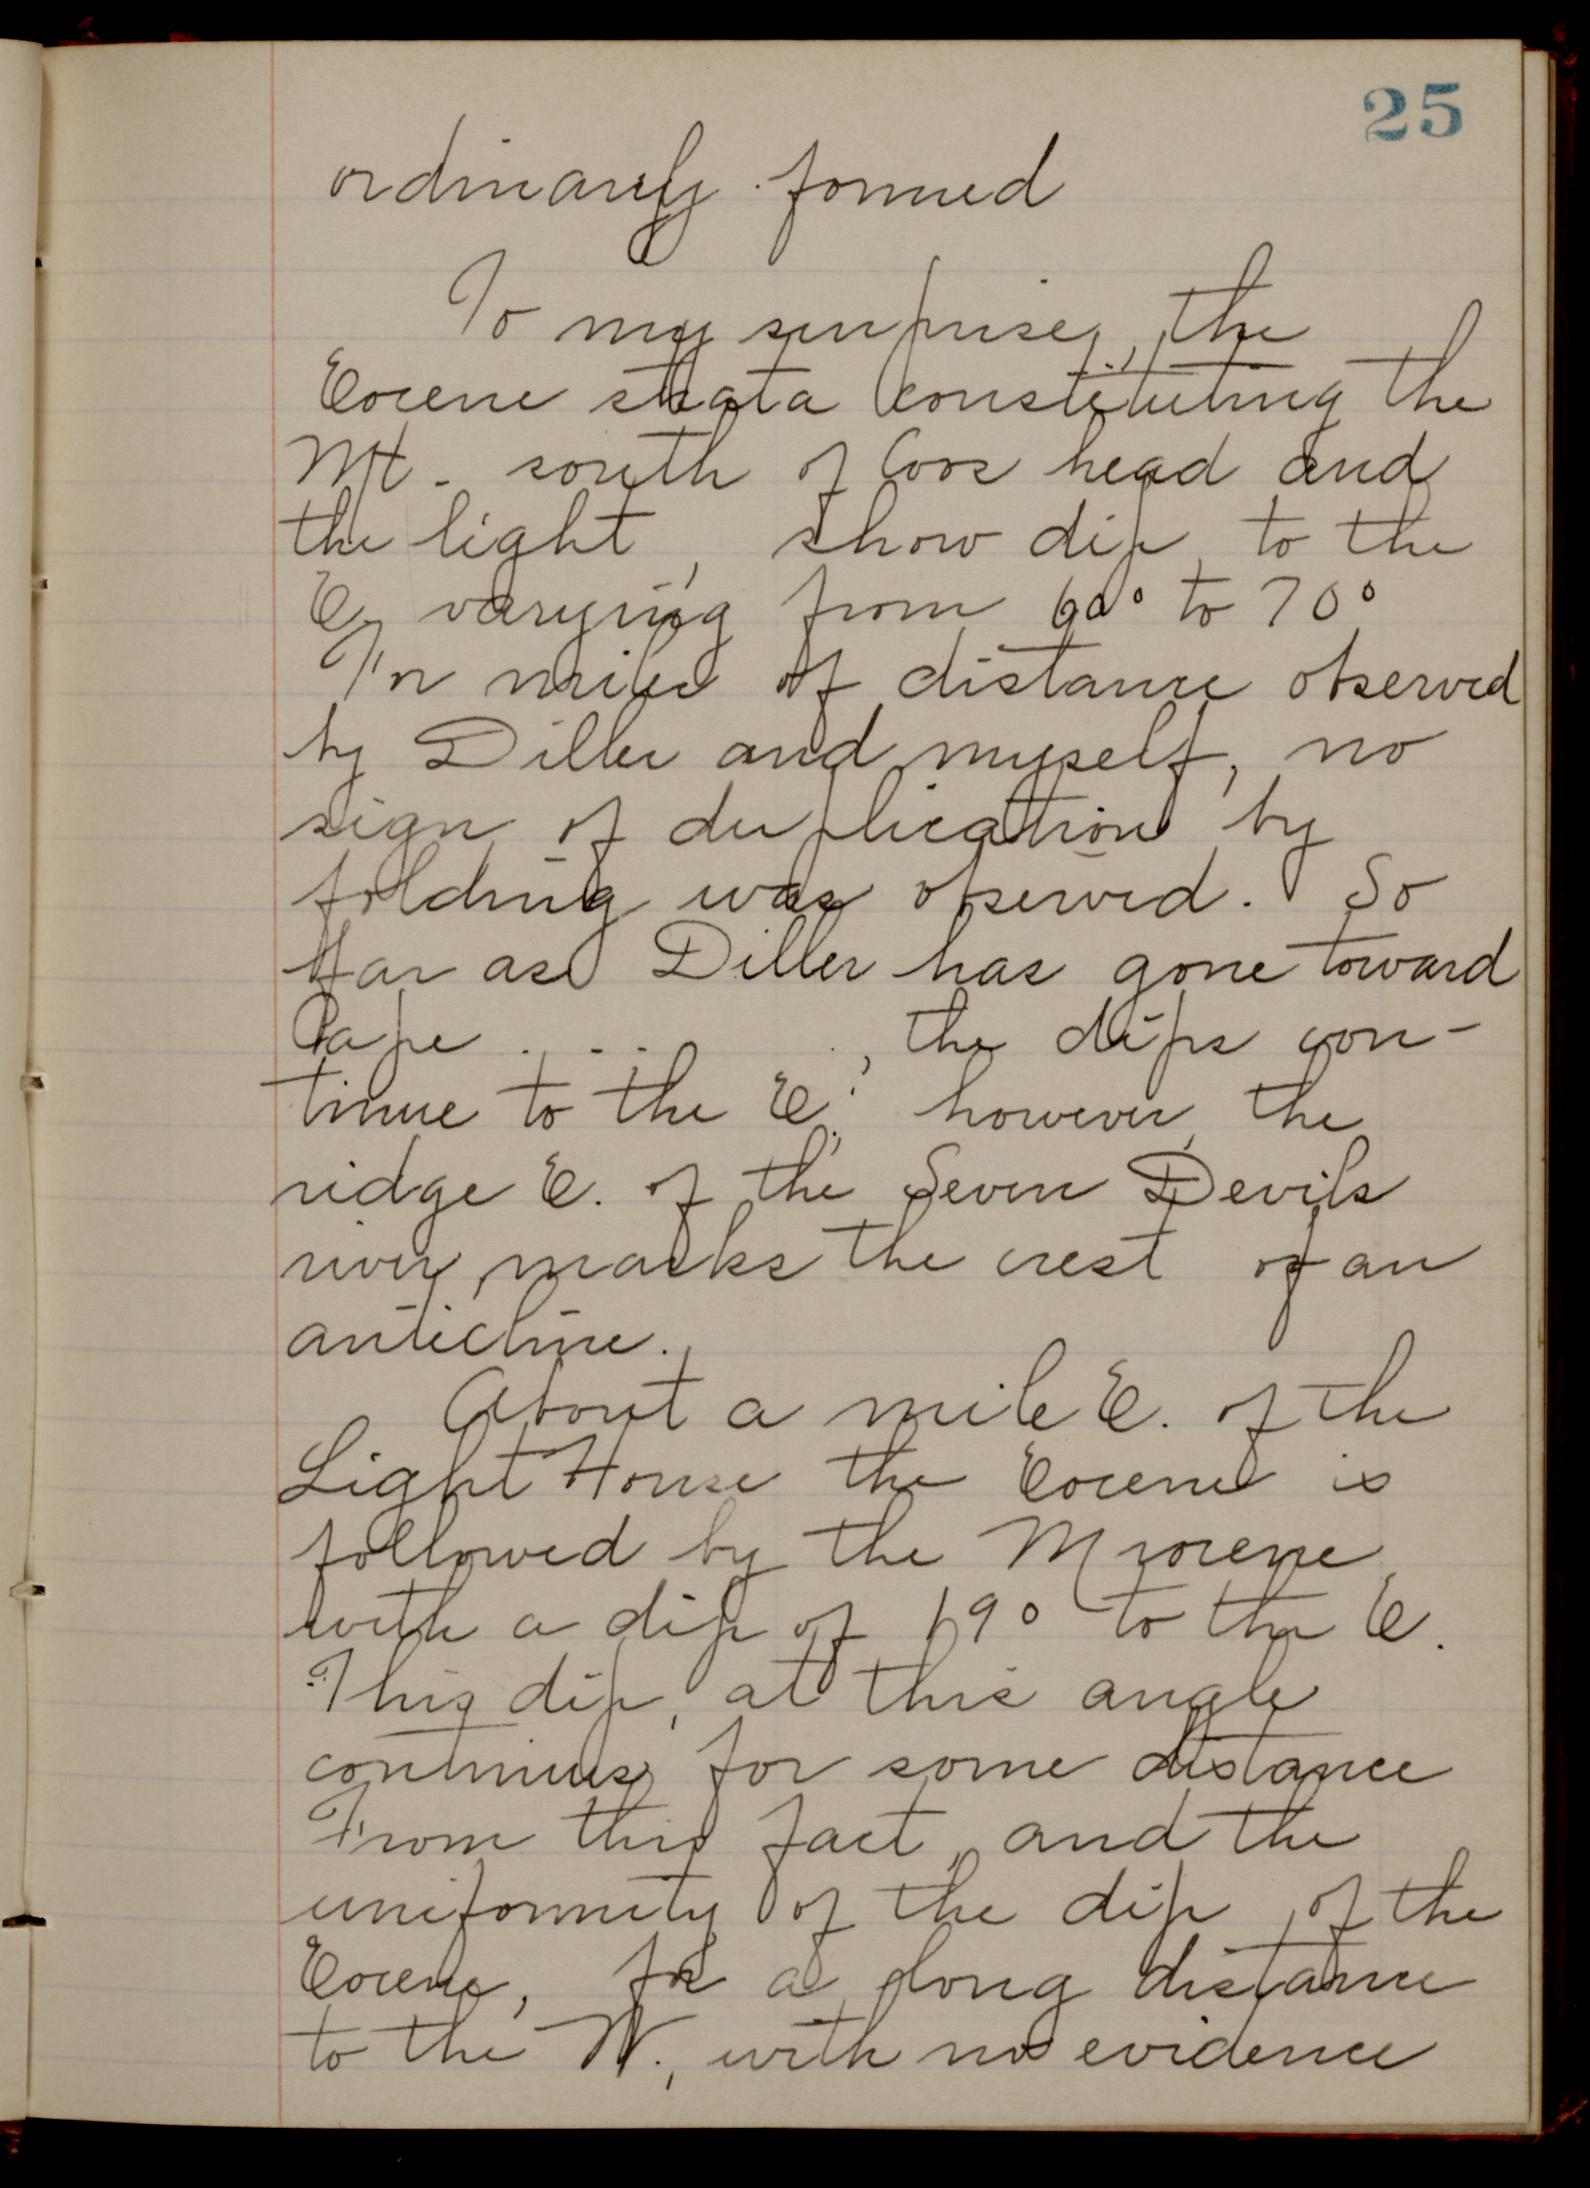 25
ordinarily formed
To my surprise, the
Eocene strata constituting the
Mt. south of Coos head and
the light, show dip to the
E, varying from 60° to 70°
In miles of distance observed
by Diller and myself, no
sign of duplication by
folding was observed. So
far as Diller has gone toward
Cape . . . . , the dips con-
tinue to the E.; however, the
ridge E. of the Seven Devils
river, marks the crest of an
anticline.
About a mile E. of the
Light House the Eocene is
followed by the Miocene,
with a dip of 69° to the E.
This dip, at this angle
continues for some distance
From this fact, and the
uniformity of the dip, of the
Eocene, for a long distance
to the W., with no evidence